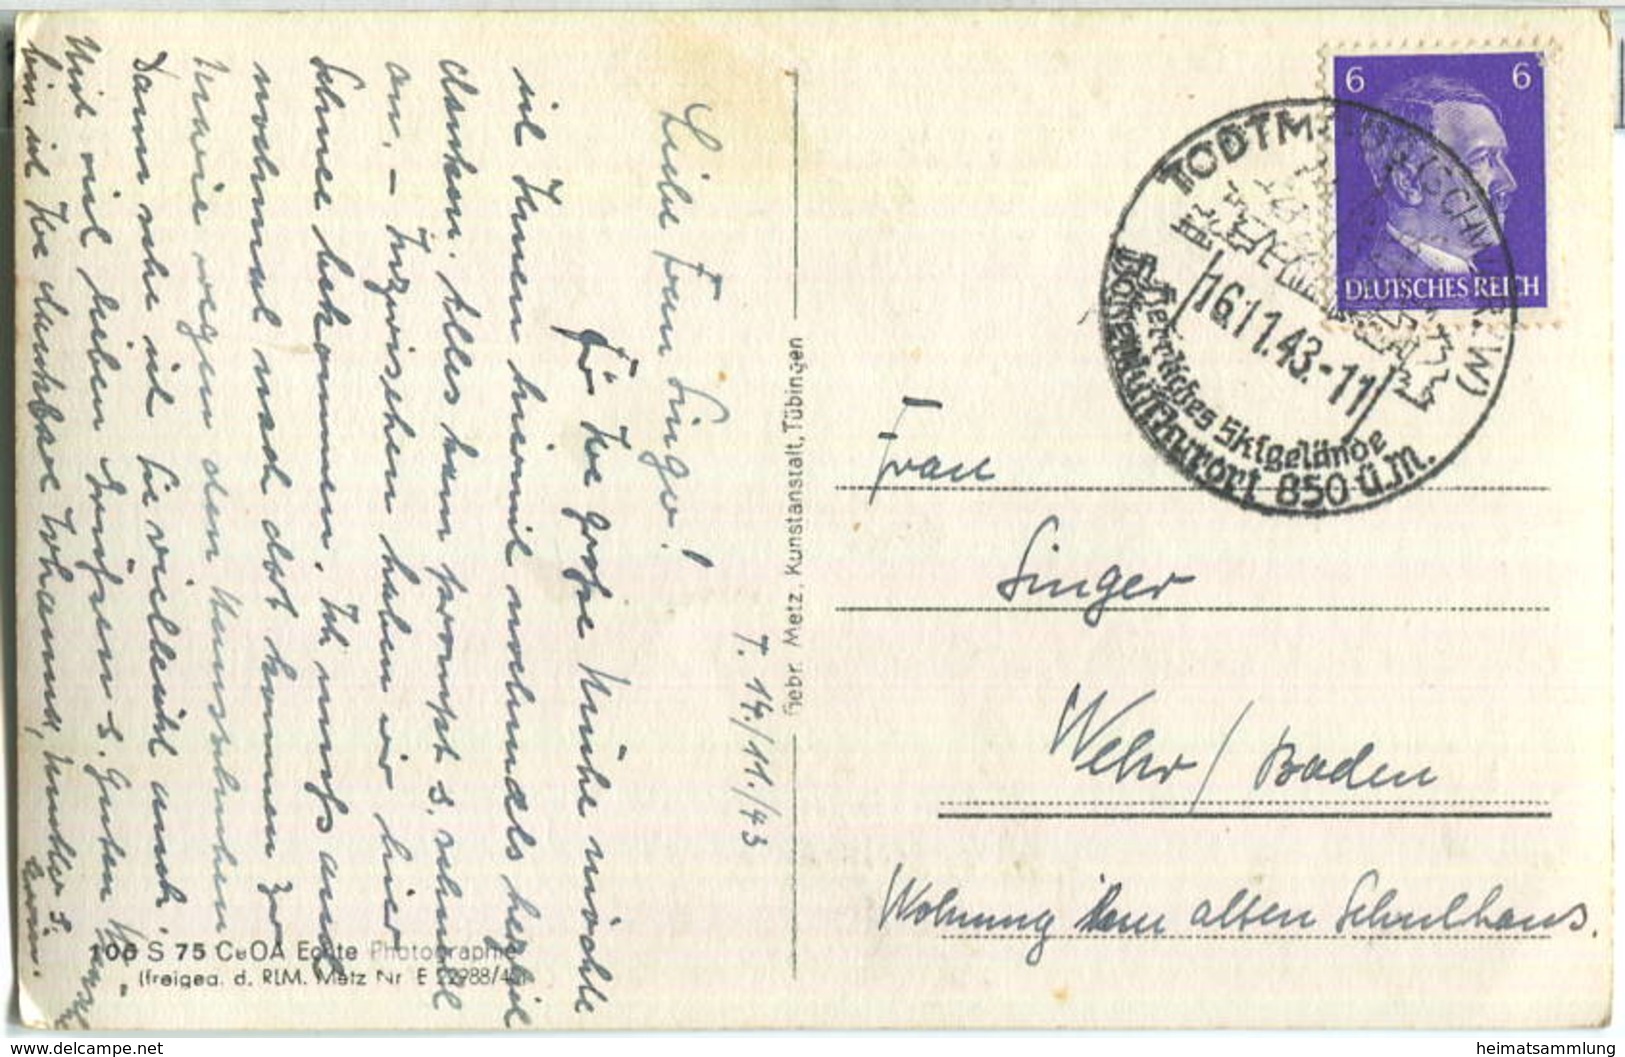 Liebe Frau Singer!
T. 14./11./43
Für Ihre große Mühe möchte
ich Ihnen hiermit nochmals herzlich
danken. Alles kam prompt u. schnell
an. – Inzwischen haben wir hier
Schnee bekommen. Ich muß auch
nochmal nach dort kommen zu
wegen dem
Dann sehe ich Sie vielleicht auch.
Mit viel lieben Grüßen u. guten
bin ich Ihre dankbare Johanna, Mutter u.
Erwin.
106 S 75 CeOA Echte Photographie
(freigeg. d. RLM. Metz Nr. E 22988/4
Gebr. Metz, Kunstanstalt, Tübingen
6 6
DEUTSCHES REICH
TODTMOOS (SCHWARZW)
16.11.43.-11
Herrliches Skigelände
Höhenluftkurort 850 ü.M.
Frau
Singer
Wehr / Baden
Wohnung im alten Schulhaus.
delcampe.net
heimatsammlung